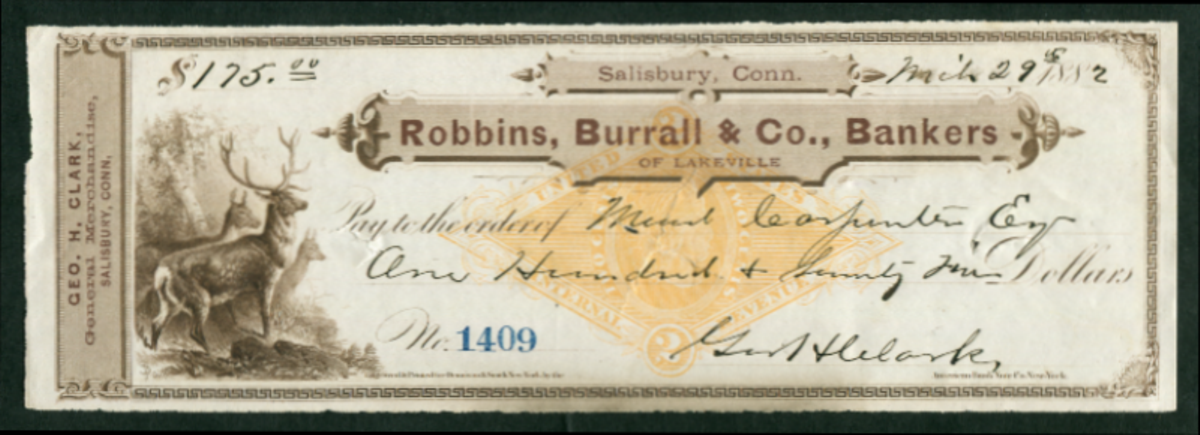 GEO. H. CLARK,
General Merchandise,
SALISBURY, CONN.
$175.00
Salisbury, Conn.
Mch 29th 1882
Robbins, Burrall & Co., Bankers
OF LAKEVILLE
UNITED STATES
INTERNAL REVENUE
2
Pay to the order of Carpenter Esq
One Hundred & Seventy Five Dollars
No. 1409
Geo H Clark,
American Bank Note Co. New York.